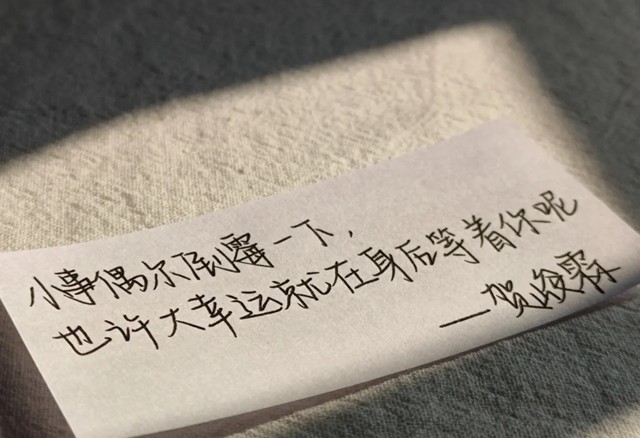 小事偶尔倒霉一下，
也许大幸运就在身后等着你呢
—贺峻霖